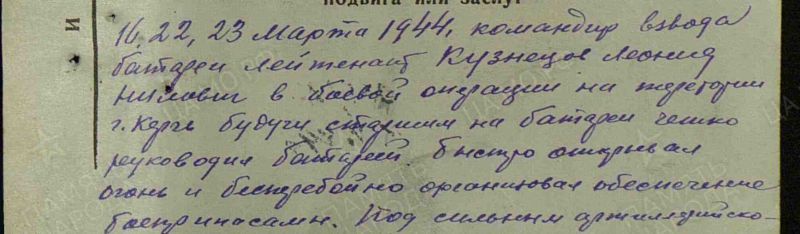 подвига или заслуг
И
16, 22, 23 марта 1944, командир взвода
батареи лейтенант Кузнецов Леонид
Нилович в боевой операции на теретории
г. Керчь будучи старшим на батареи четко
руководил батареей. Быстро открывал
огонь и бесперебойно организовал обеспечение
боеприпасами. Под сильным артиллерийско-